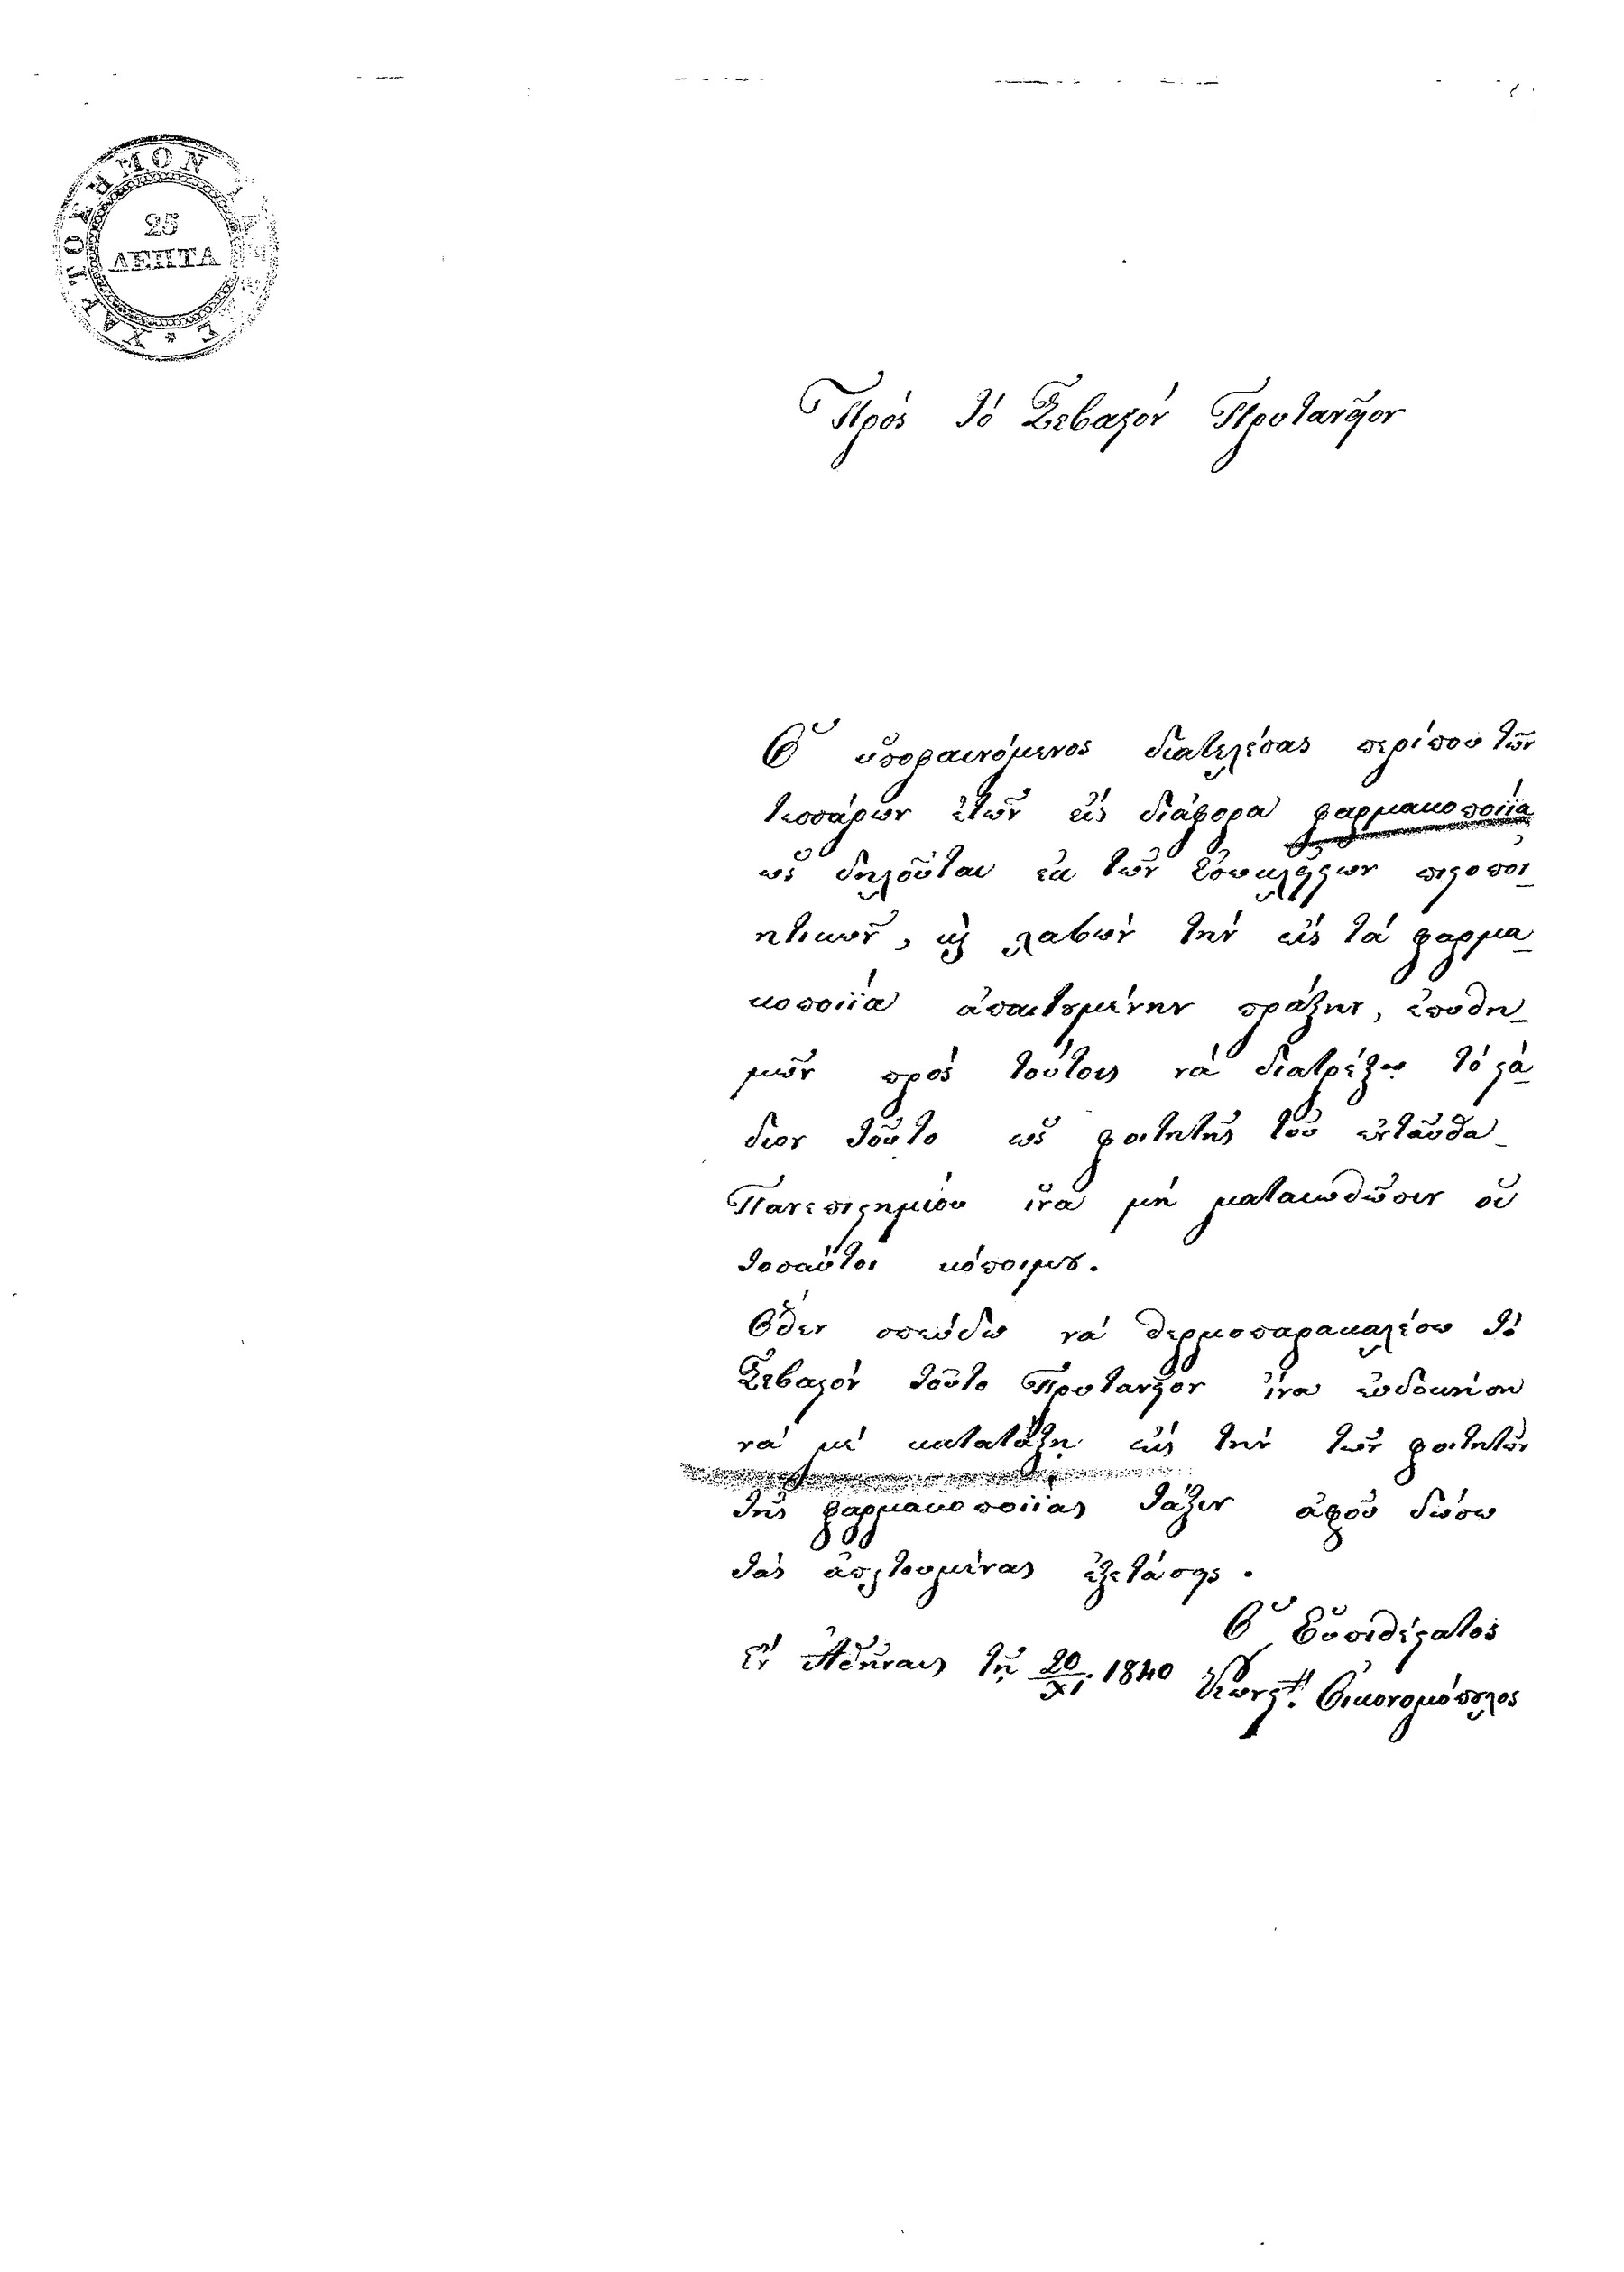 ΧΑΡΤΟΣΗΜΟΝ
25
ΛΕΠΤΑ
Πρὸς τὸ Σεβαστὸν Πρυτανεῖον
Ὁ ὑποφαινόμενος διατελέσας περίπου τῶν
τεσσάρων ἐτῶν εἰς διάφορα φαρμακοποιΐα
ὡς δηλοῦται ἐκ τῶν ἐσωκλείστων πιστοποι
ητικῶν, καὶ λαβὼν τὴν εἰς τὰ φαρμα
κοποιΐα ἀπαιτουμένην πρᾶξιν, ἐπιθυ
μῶν πρὸς τούτοις νὰ διατρέξω τὸ στά
διον τοῦτο ὡς φοιτητὴς τοῦ ἐνταῦθα
Πανεπιστημίου ἵνα μὴ ματαιωθῶσιν οἱ
τοσαῦτοι κόποιμου.
Ὅθεν σπεύδω νὰ θερμοπαρακαλέσω τὸ
Σεβαστὸν τοῦτο Πρυτανεῖον ἵνα εὐδοκήση
νὰ μὲ κατατάξῃ εἰς τὴν τῶν φοιτητῶν
τῆς φαρμακοποιΐας τάξιν ἀφοῦ δώσω
τὰς ἀπαιτουμένας ἐξετάσεις.
Ὁ Εὐπειθέστατος
Ἐν Ἀθήναις τῇ 20/XI. 1840 Κωνστ. Οἰκονομόπουλος